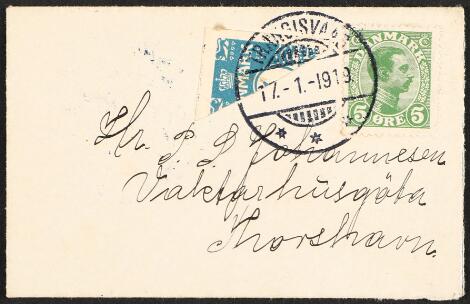 TRANGISVAAG
17.-1.-1919
DANMARK
5 ØRE 5
Hr. P. D. Johannesen
Vaktarhusgöta
Thorshavn.